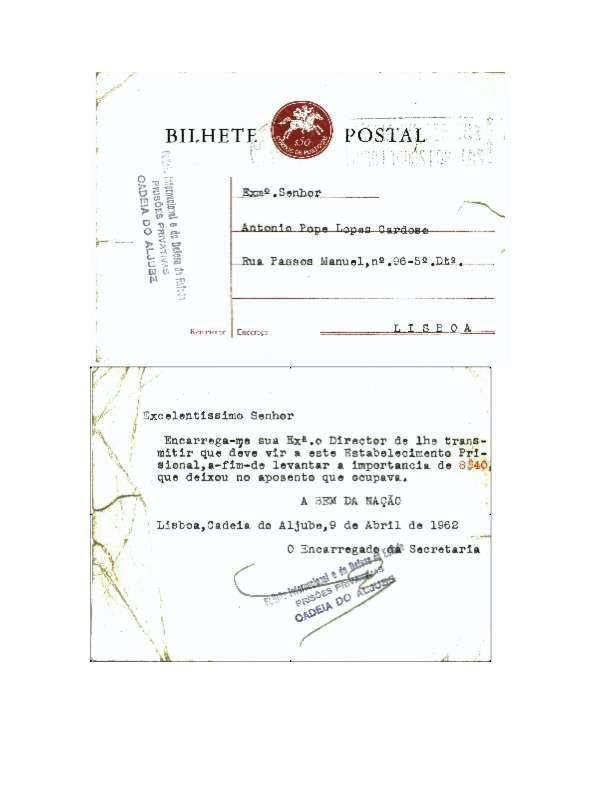 BILHETE POSTAL
$50
CORREIO DE PORTUGAL
Internacional e de Defesa do Estado
PRISÕES PRIVATIVAS
CADEIA DO ALJUBE
Exmº.Senhor
Antonio Pope Lopes Cardoso
Rua Passos Manuel,nº.96-5º.Dtº.
LISBOA
Remetente
Endereço
Excelentissimo Senhor
Encarrega-me sua Exª.o Director de lhe trans-
mitir que deve vir a este Estabelecimento Pri-
sional,a-fim-de levantar a importancia de 8$40,
que deixou no aposento que ocupava.
A BEM DA NAÇÃO
Lisboa,Cadeia do Aljube,9 de Abril de 1962
O Encarregado da Secretaria
Internacional e de Defesa do Estado
PRISÕES PRIVATIVAS
CADEIA DO ALJUBE